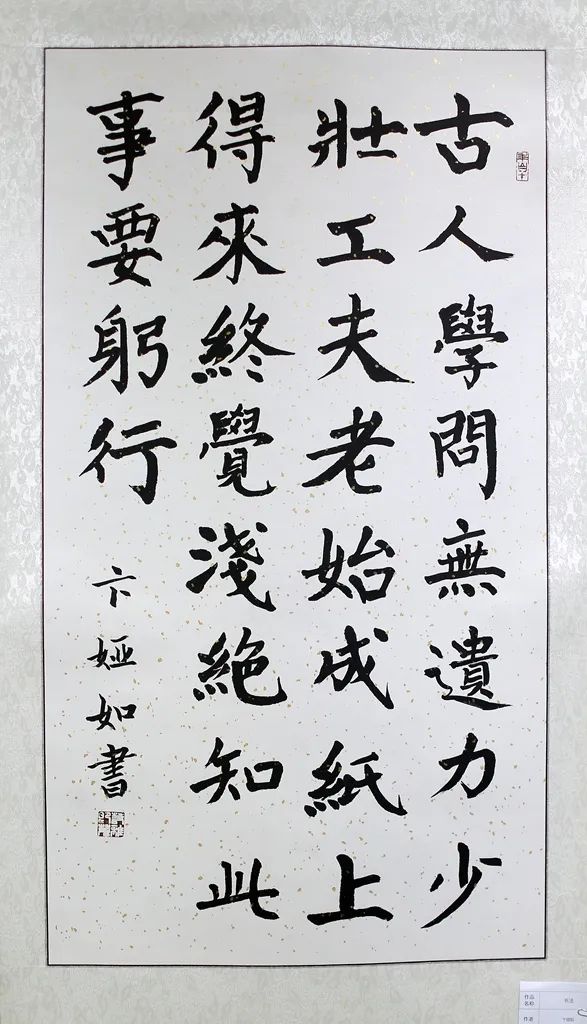 古人學問無遺力少
壯工夫老始成紙上
得來終覺淺絕知此
事要躬行
卞婭如書
作品名称 书法
作者